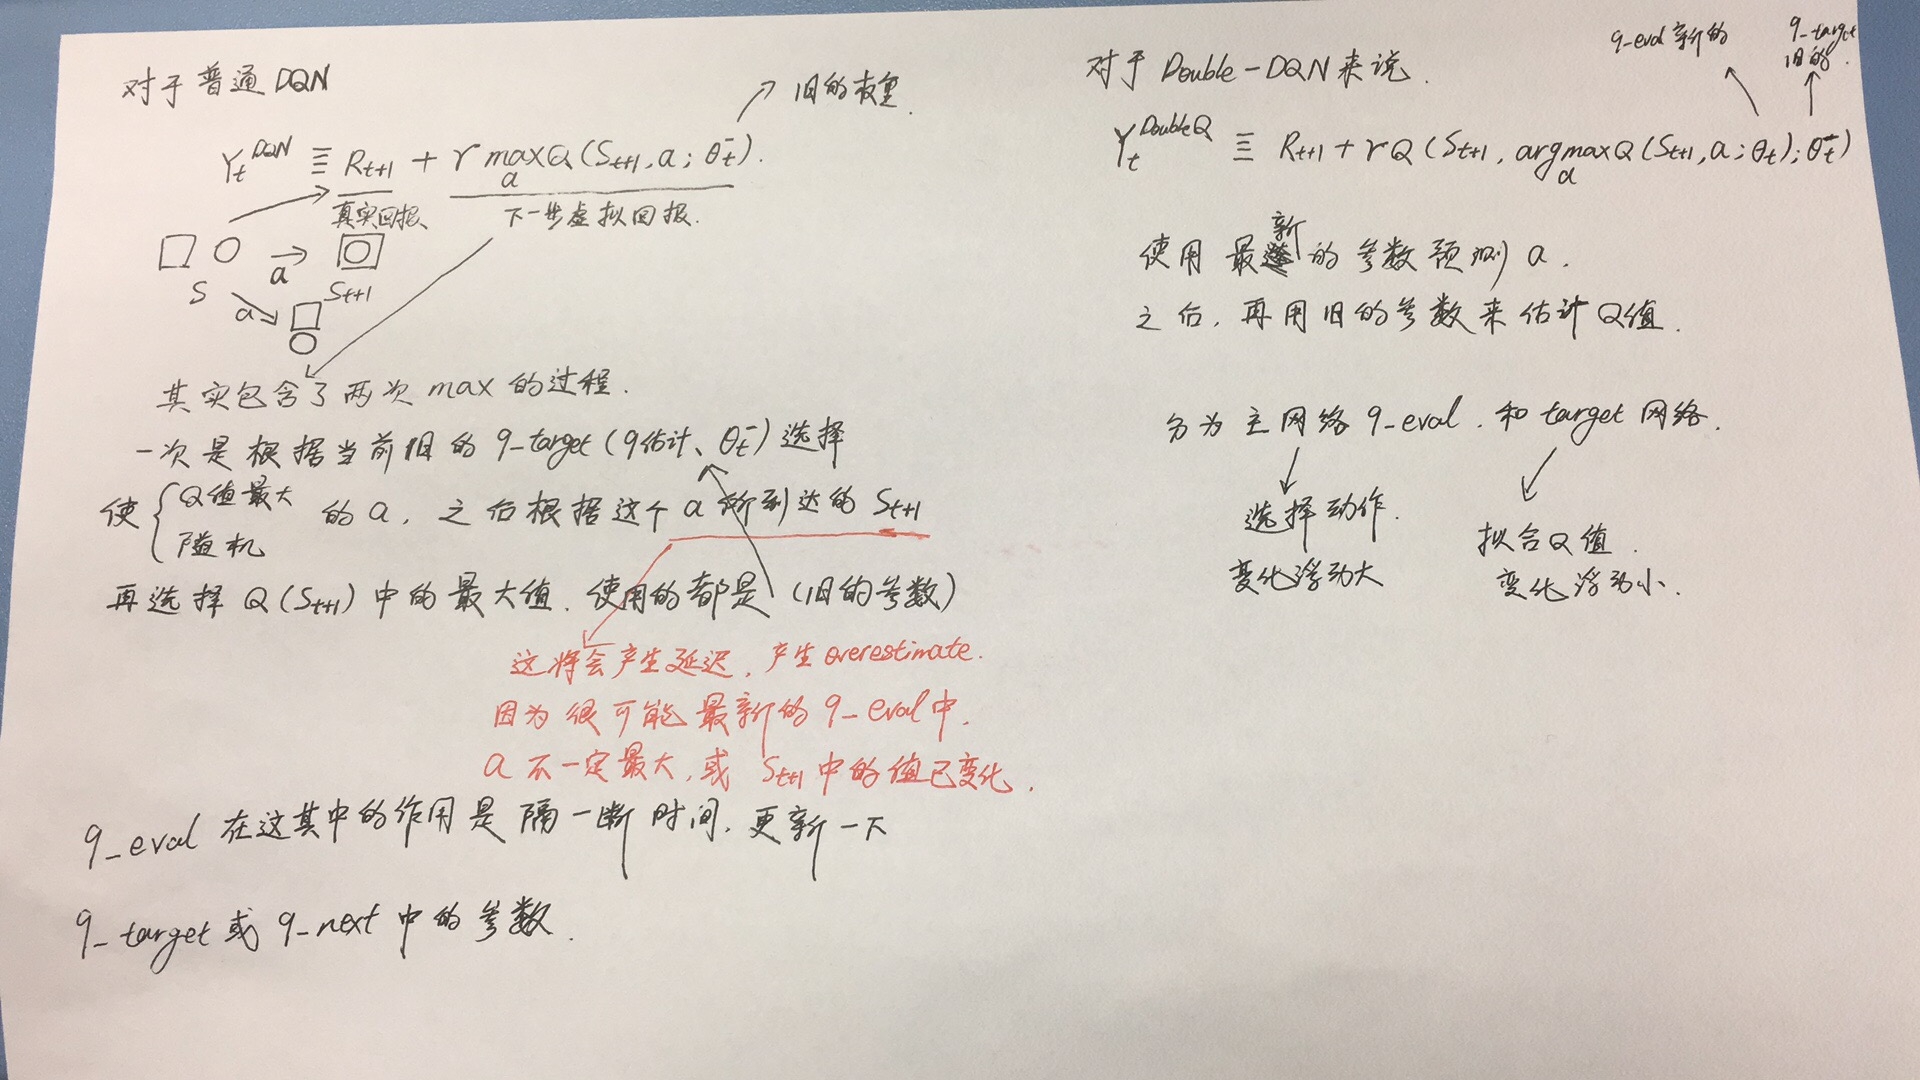 对于普通DQN
旧的权重
Y_t^{DQN} ≡ R_{t+1} + γ max_a Q(S_{t+1}, a; θ_t^-).
真实回报、
下一步虚拟回报.
a
S
S_{t+1}
a
其实包含了两次max的过程.
一次是根据当前旧的q_target(q估计、θ_t^-)选择
使{Q值最大
随机
的a, 之后根据这个a所到达的S_{t+1}
再选择Q(S_{t+1})中的最大值. 使用的都是(旧的参数)
这将会产生延迟, 产生overestimate.
因为很可能最新的q_eval中,
a不一定最大, 或S_{t+1}中的值已变化.
q_eval在这其中的作用是隔一断时间, 更新一下
q_target或q_next中的参数.
对于Double-DQN来说.
q_eval新的
q_target
旧的.
Y_t^{DoubleQ} ≡ R_{t+1} + γQ(S_{t+1}, argmax_a Q(S_{t+1}, a; θ_t); θ_t^-)
使用最新的参数预测a.
之后, 再用旧的参数来估计Q值.
分为主网络q_eval. 和target网络.
选择动作.
变化浮动大
拟合Q值.
变化浮动小.